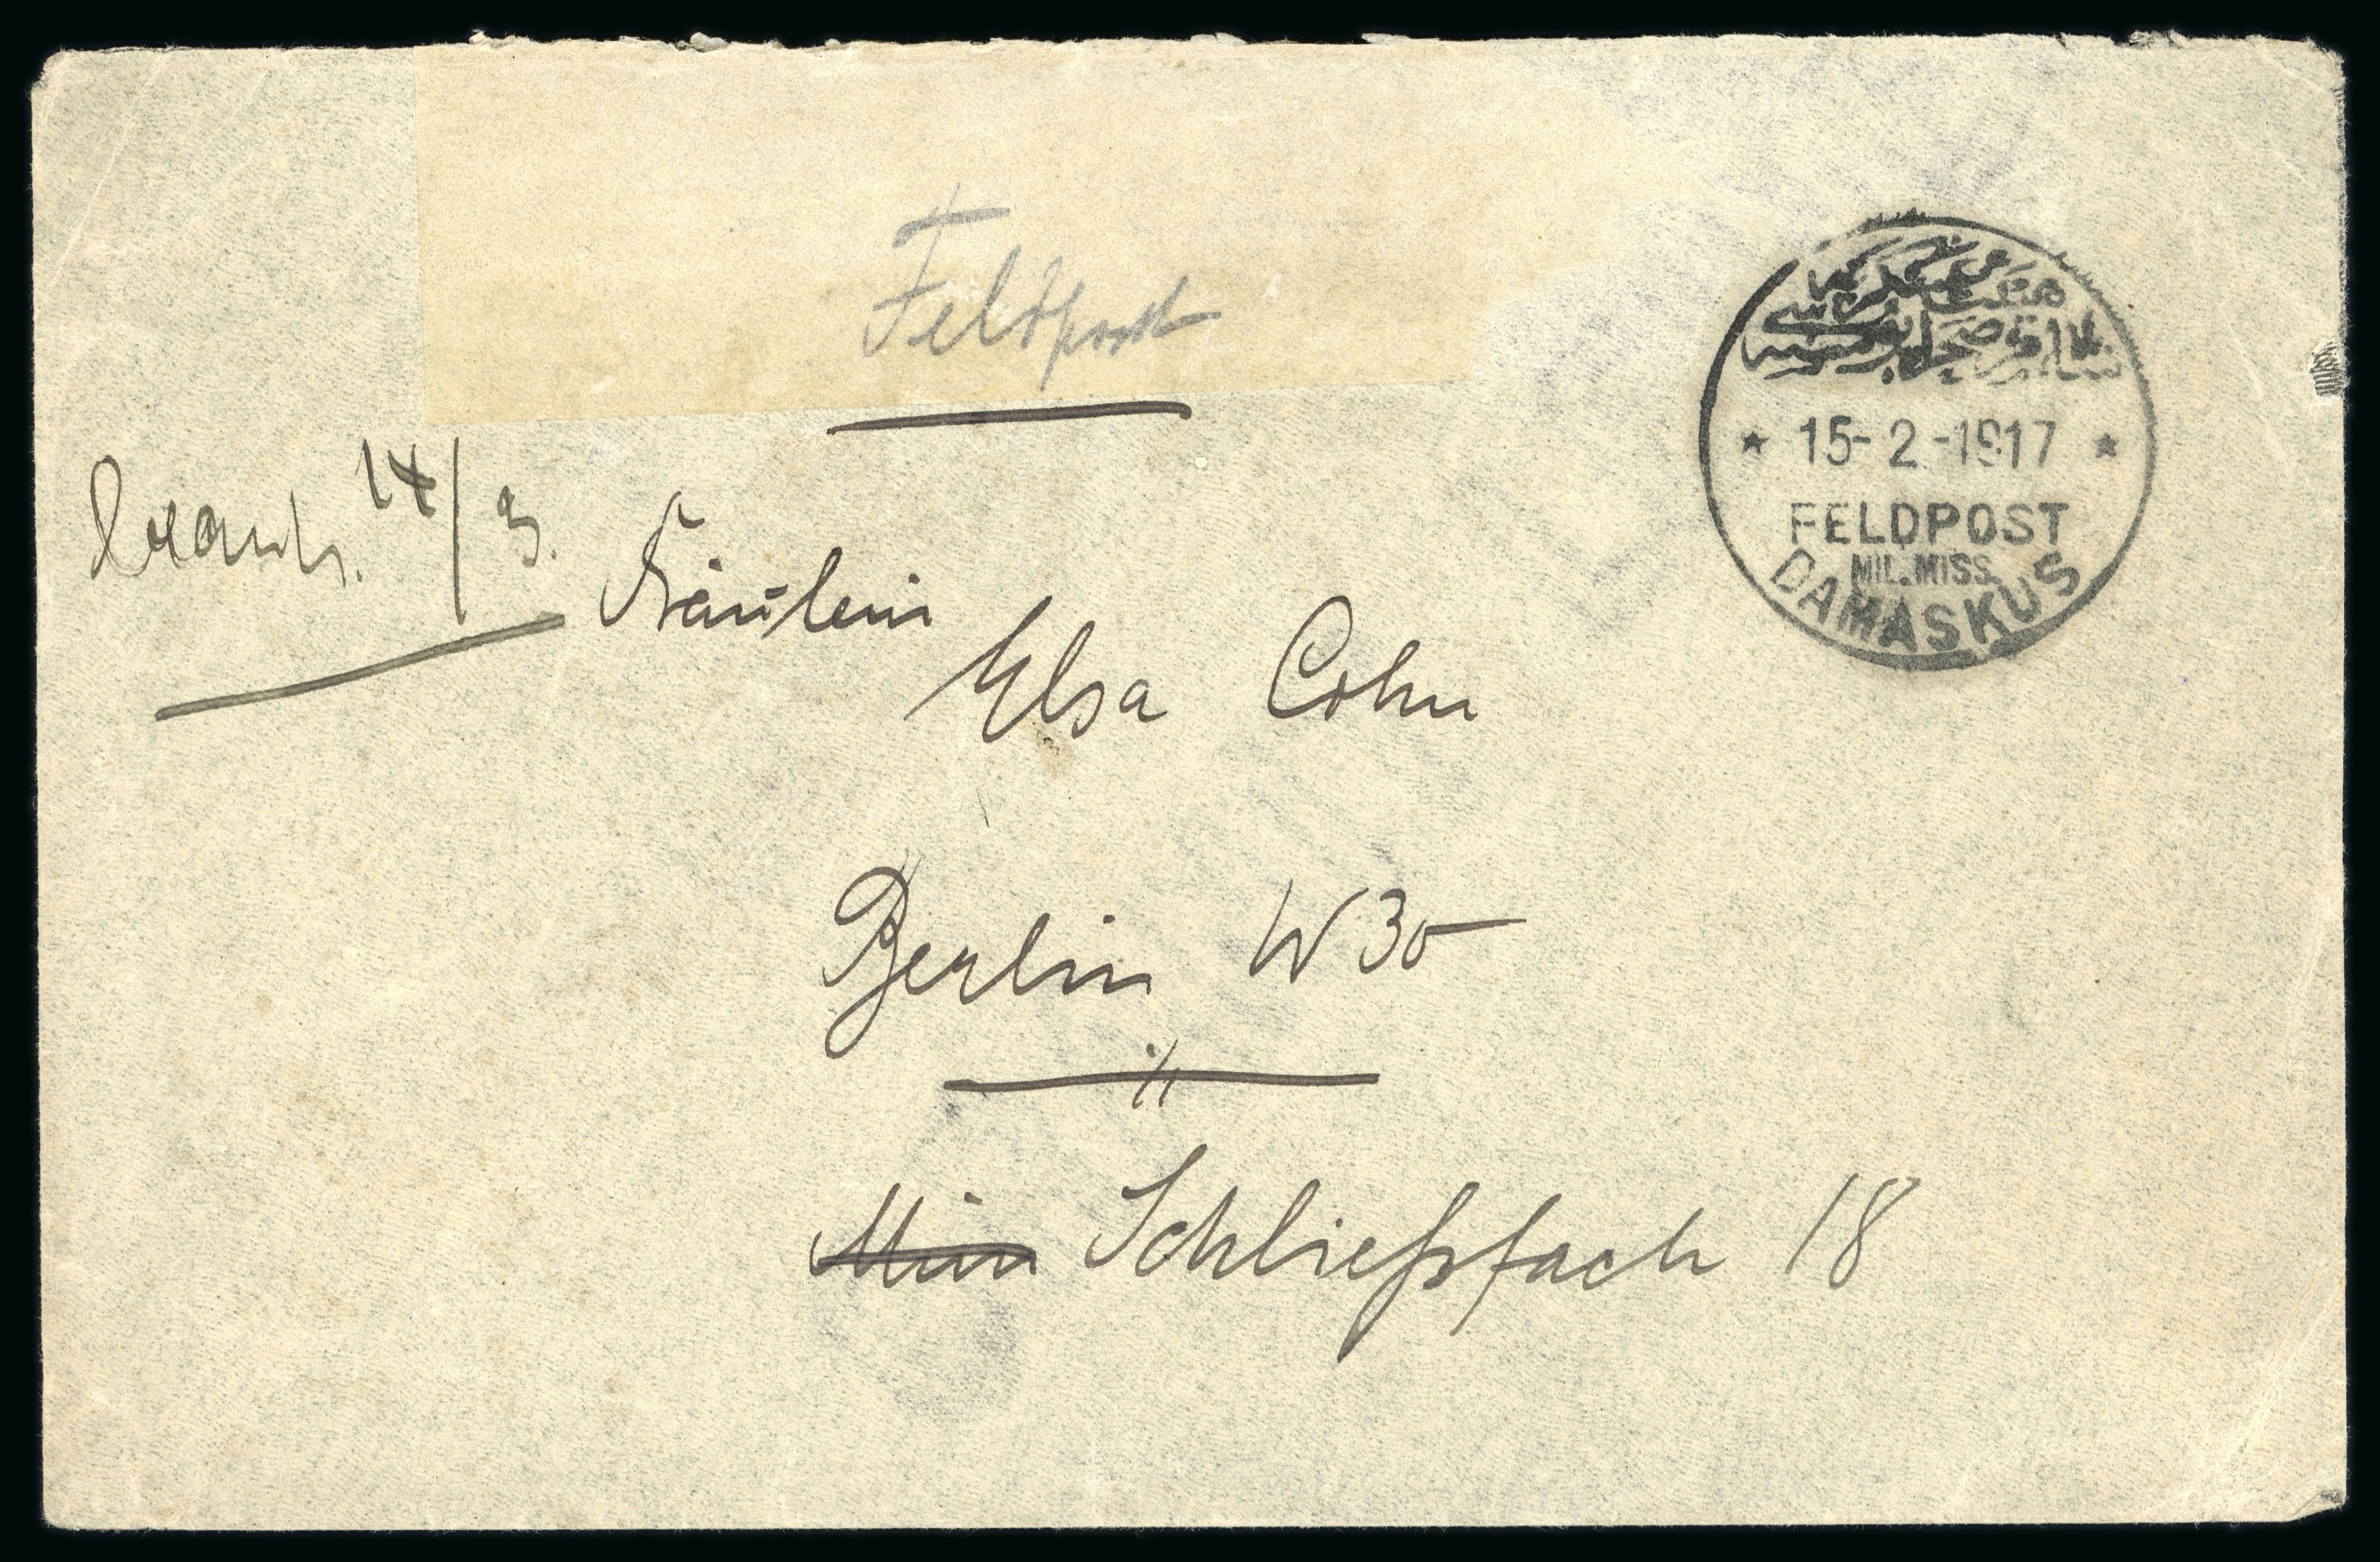 Feldpost
15-2-1917
FELDPOST
MIL. MISS.
DAMASKUS
14/3.
Fräulein
Elsa Cohn
Berlin W 30
Schließfach 18